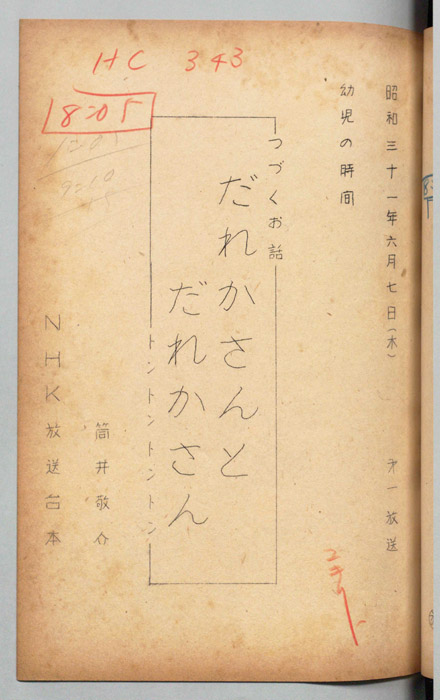 HC 343
18:05
昭和三十一年六月七日(木)
第一放送
幼児の時間
つづくお話
だれかさんと
だれかさん
トントントントン
筒井敬介
NHK放送台本